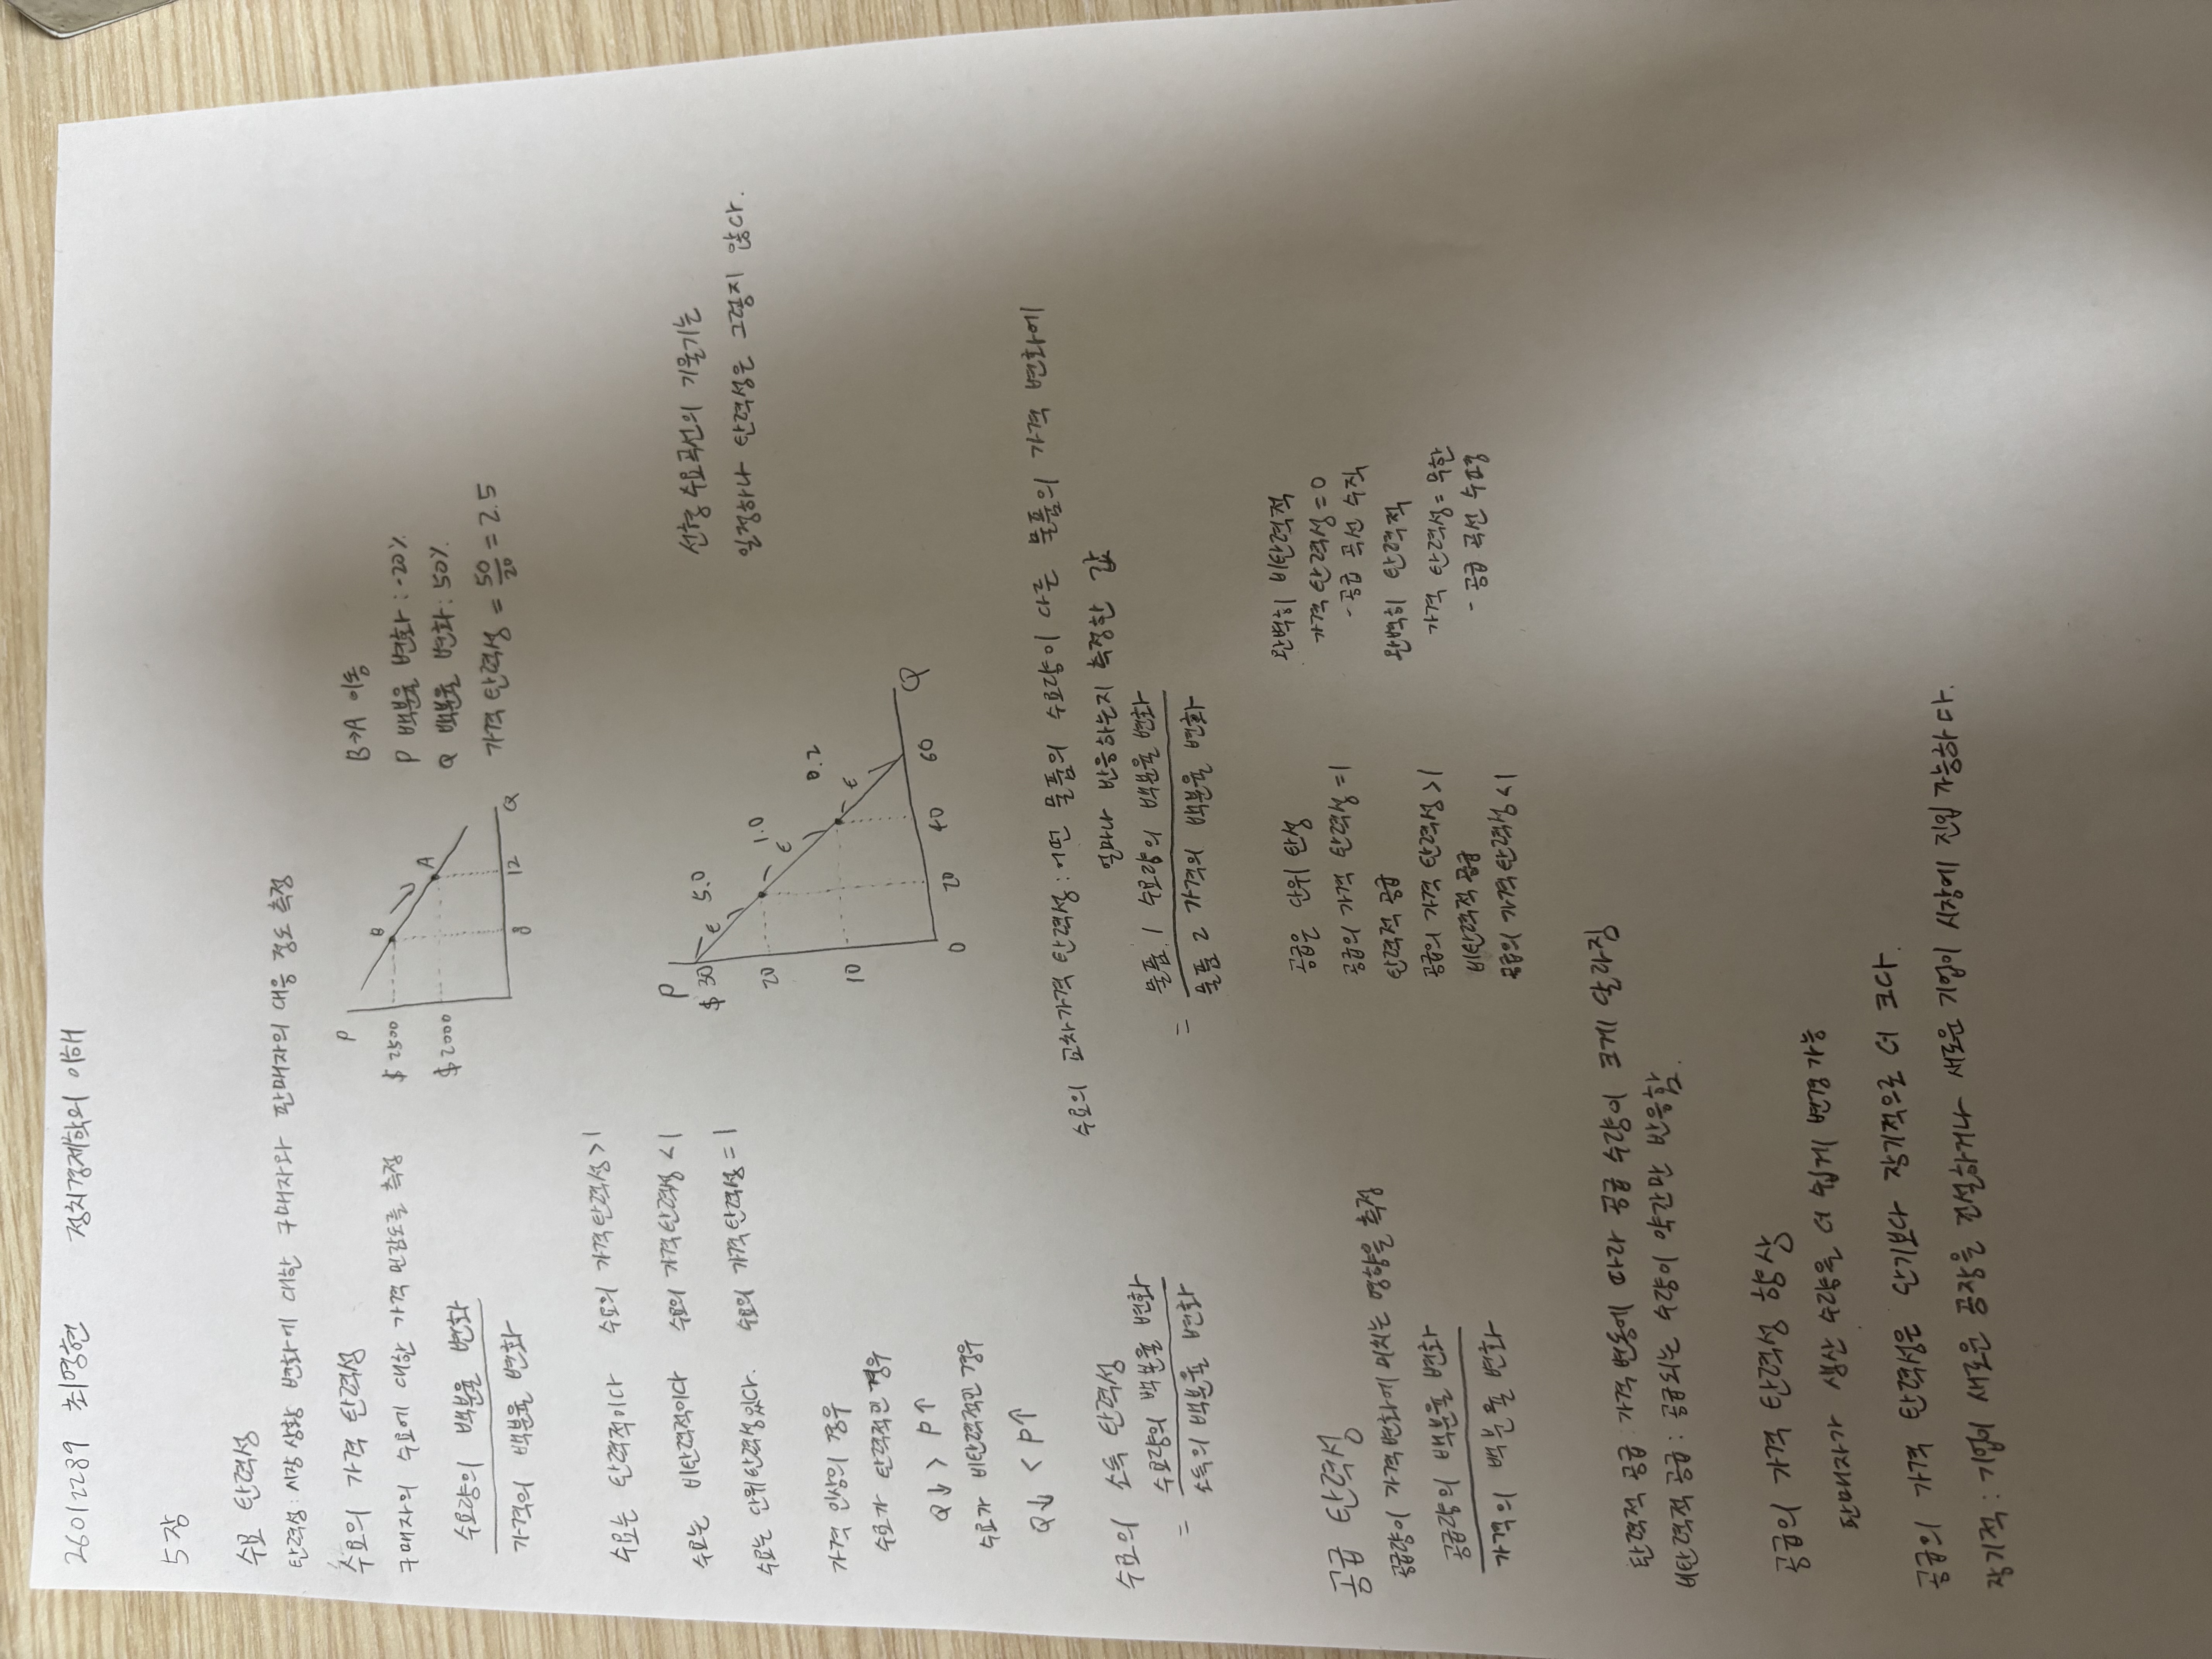 26012289 최명현 정치경제학의 이해
5장
수요 탄력성
탄력성: 시장 상황 변화에 대한 구매자와 판매자의 대응 정도 측정
수요의 가격 탄력성
구매자의 수요에 대한 가격 민감도를 측정
수요량의 백분율 변화
가격의 백분율 변화
P
$2500
$2000
B
A
8
12
Q
B→A 이동
P 백분율 변화: -20%
Q 백분율 변화: 50%
가격 탄력성 = 50/20 = 2.5
수요는 탄력적이다 수요의 가격탄력성>1
수요는 비탄력적이다 수요의 가격탄력성<1
수요는 단위탄력성있다. 수요의 가격탄력성=1
P
$30
20
10
0
20
40
60
Q
E 5.0
E 1.0
E 0.2
선형 수요곡선의 기울기는
일정하나 탄력성은 그렇지 않다.
가격 인상의 경우
수요가 탄력적인 경우
Q↓ > P↑
수요가 비탄력적인 경우
Q↓ < P↑
수요의 소득 탄력성
= 수요량의 백분율 변화
소득의 백분율 변화
수요의 교차가격 탄력성: 어떤 물품의 수요량이 다른 물품의 가격 변화에
얼마나 반응하는지 측정한 값
= 물품 1 수요량의 백분율 변화
물품 2 가격의 백분율 변화
공급 탄력성
공급량이 가격변화에 미치는 영향을 측정
공급량의 백분율 변화
가격의 백분율 변화
공급은 단위 탄성
공급의 가격 탄력성=1
탄력적 공급
공급의 가격 탄력성>1
비탄력적 공급
공급의 가격탄력성<1
완벽히 비탄력적
가격탄력성=0
- 공급 곡선 수직
완벽히 탄력적
가격 탄력성=무한
- 공급 곡선 수평
탄력적 공급: 가격 변동에 따라 공급 수량이 크게 달라짐
비탄력적 공급: 공급되는 수량이 약간만 반응함.
공급의 가격 탄력성 향상
판매자가 생산 수량을 더 쉽게 변경 가능
공급의 가격 탄력성은 단기보다 장기적으로 더 크다.
장기적: 기업이 새로운 공장을 건설하거나 새로운 기업이 시장에 진입 가능하다.